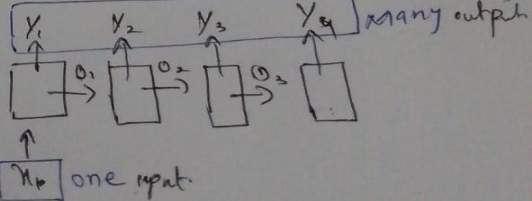 Y₁ Y₂ Y₃ Y₄ many output
O₁ O₂ O₃
one input.